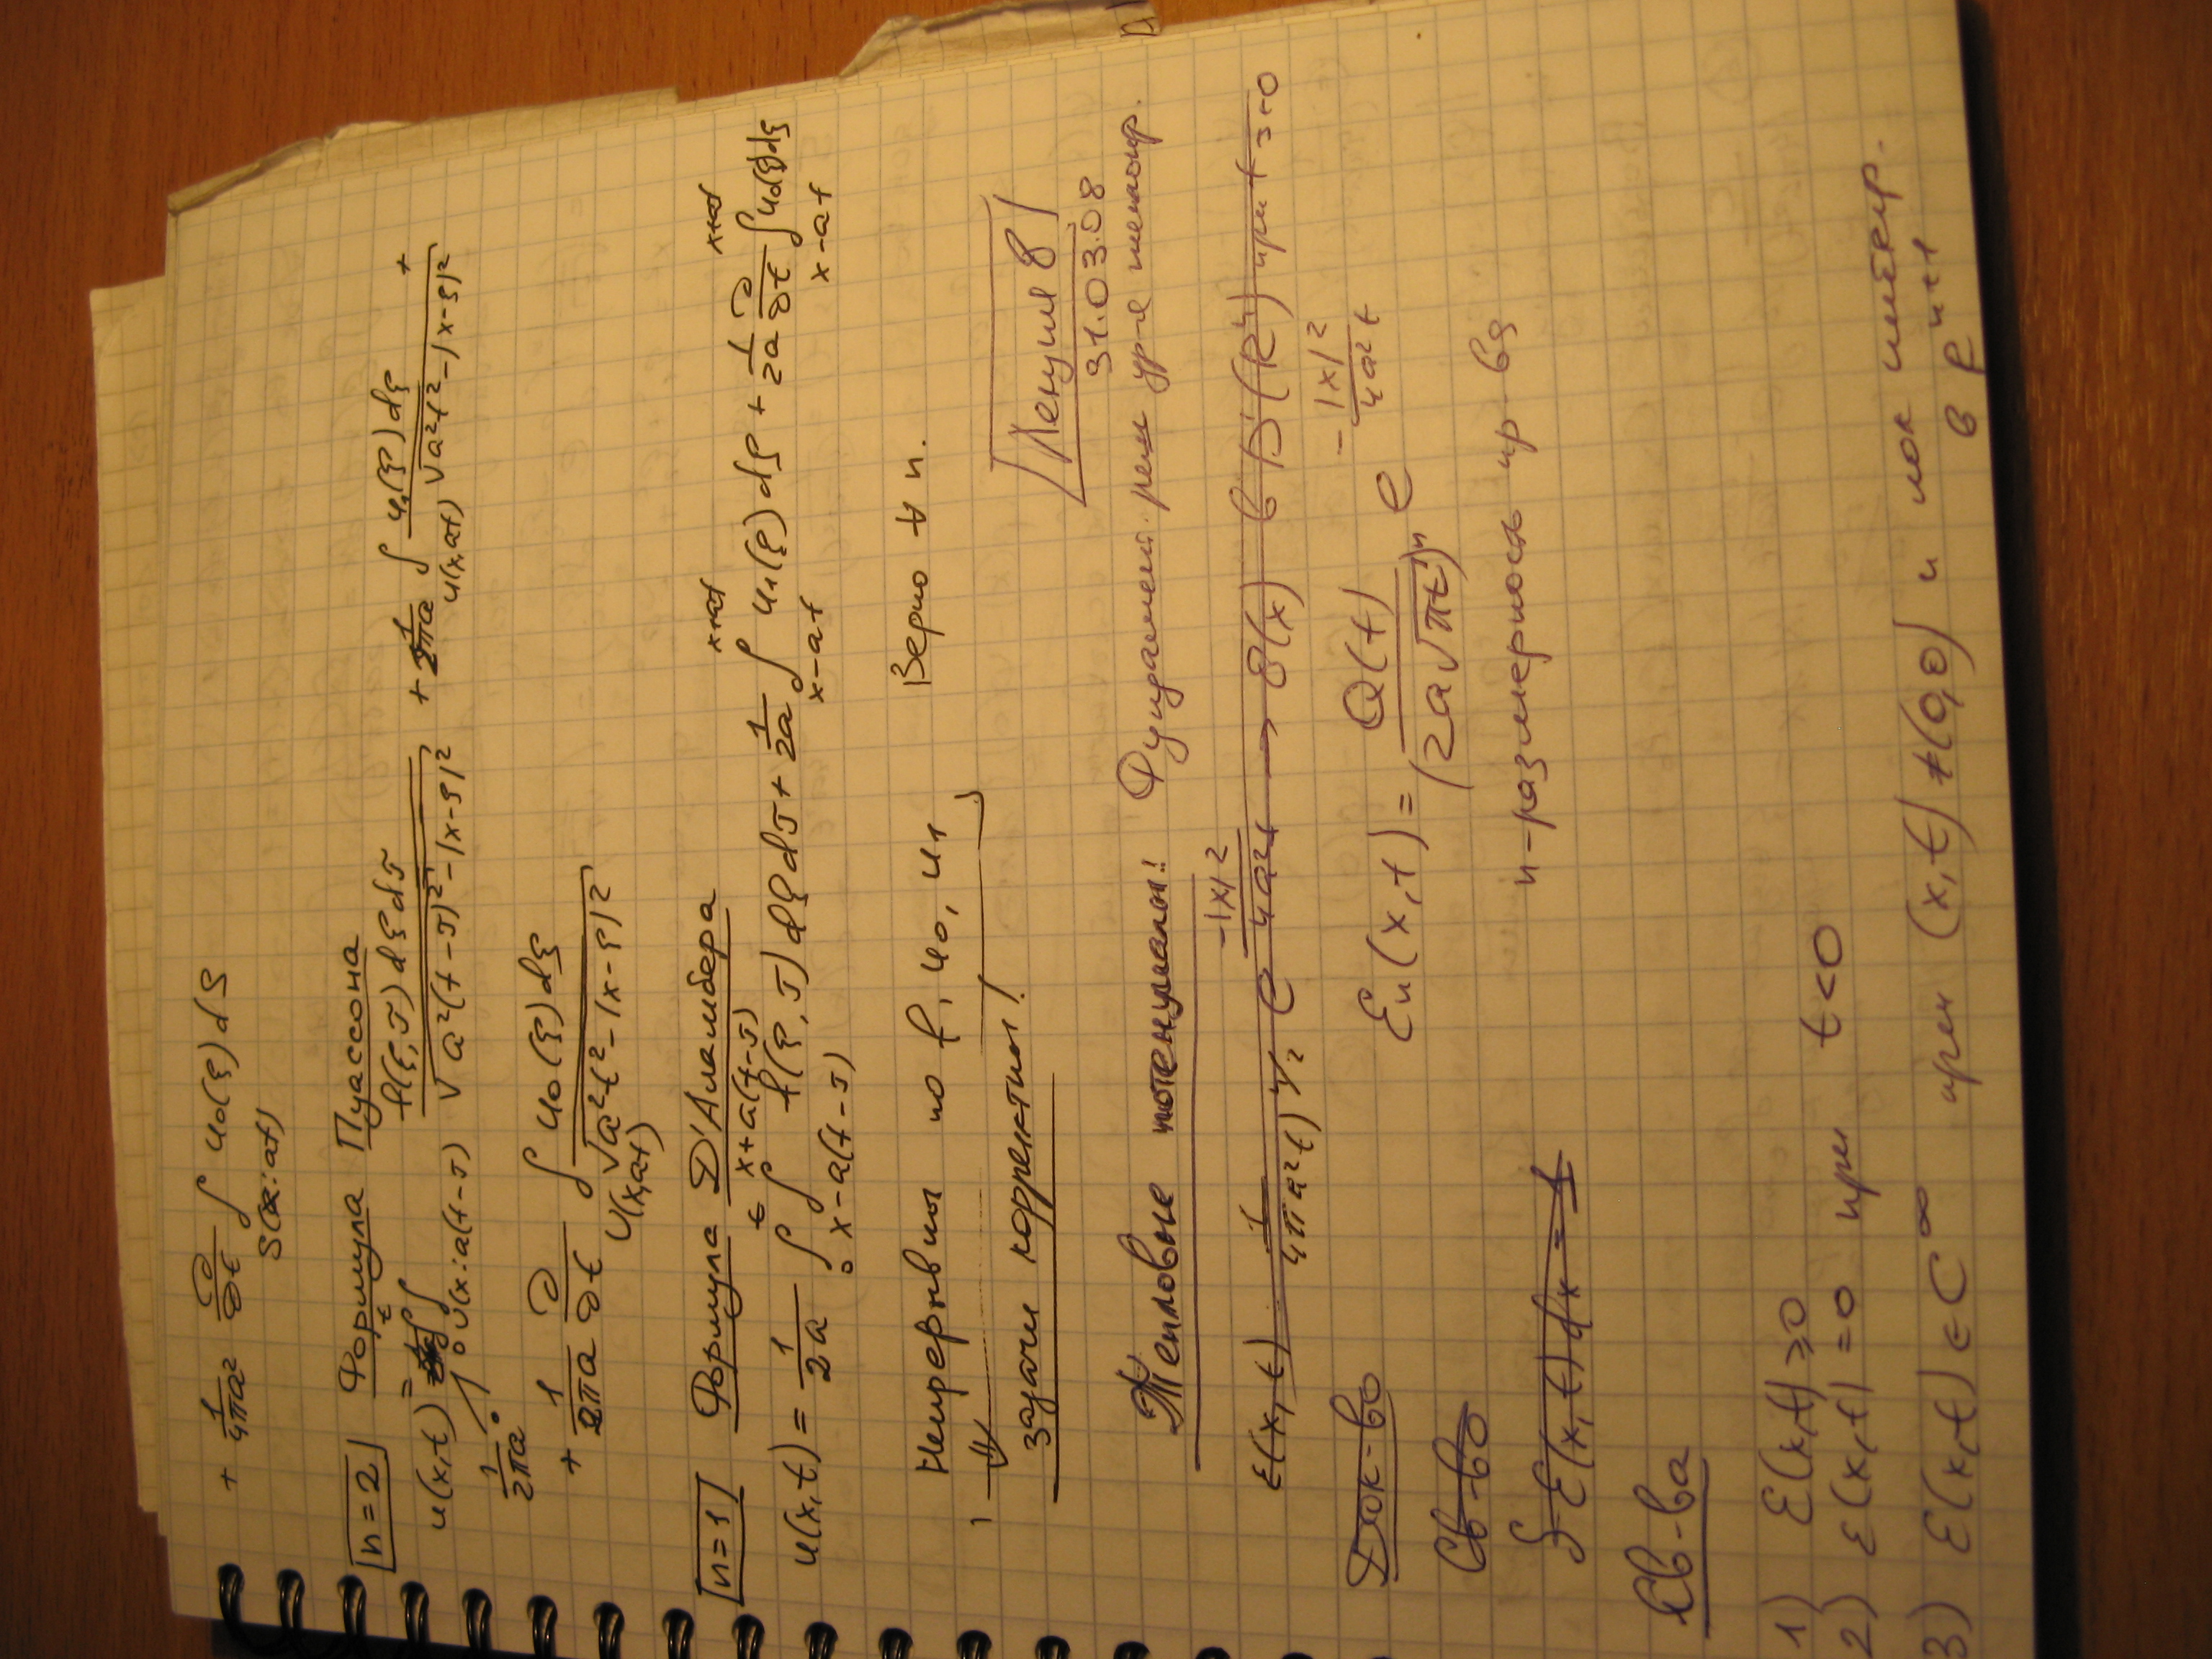 + 1/(4πa²) ∂/∂t ∫_{S(x:at)} u₀(ξ)dS
n=2 Формула Пуассона
u(x,t) = 1/(2πa) ∫₀^t ∫_{U(x:a(t-τ))} f(ξ,τ)dξdτ / √(a²(t-τ)²-|x-ξ|²) + 1/(2πa) ∫_{U(x,at)} u₁(ξ)dξ / √(a²t²-|x-ξ|²) +
+ 1/(2πa) ∂/∂t ∫_{U(x,at)} u₀(ξ)dξ / √(a²t²-|x-ξ|²)
n=1 Формула Д'Аламбера
u(x,t) = 1/(2a) ∫₀^t ∫_{x-a(t-τ)}^{x+a(t-τ)} f(ξ,τ)dξdτ + 1/(2a) ∫_{x-at}^{x+at} u₁(ξ)dξ + 1/(2a) ∂/∂t ∫_{x-at}^{x+at} u₀(ξ)dξ
Непрерывны по f, u₀, u₁ Верно ∀ n.
⇓
задачи корректны!
Лекция 8
31.03.08
Тепловые потенциалы! Фундамент. реш ур-я теплопр.
ε(x,t) 1/(4πa²t)^{n/2} e^{-|x|²/(4a²t)} → δ(x) в D'(Rⁿ) при t→+0
Док-во
εₙ(x,t) = Θ(t)/(2a√(πt))ⁿ e^{-|x|²/(4a²t)}
Св-во
n-размерность пр-ва
∫ε(x,t)dx = 1
Св-ва
1) ε(x,t) ≥ 0
2) ε(x,t) = 0 при t<0
3) ε(x,t) ∈ C^∞ при (x,t) ≠ (0,0) и лок интегр.
в Rⁿ⁺¹